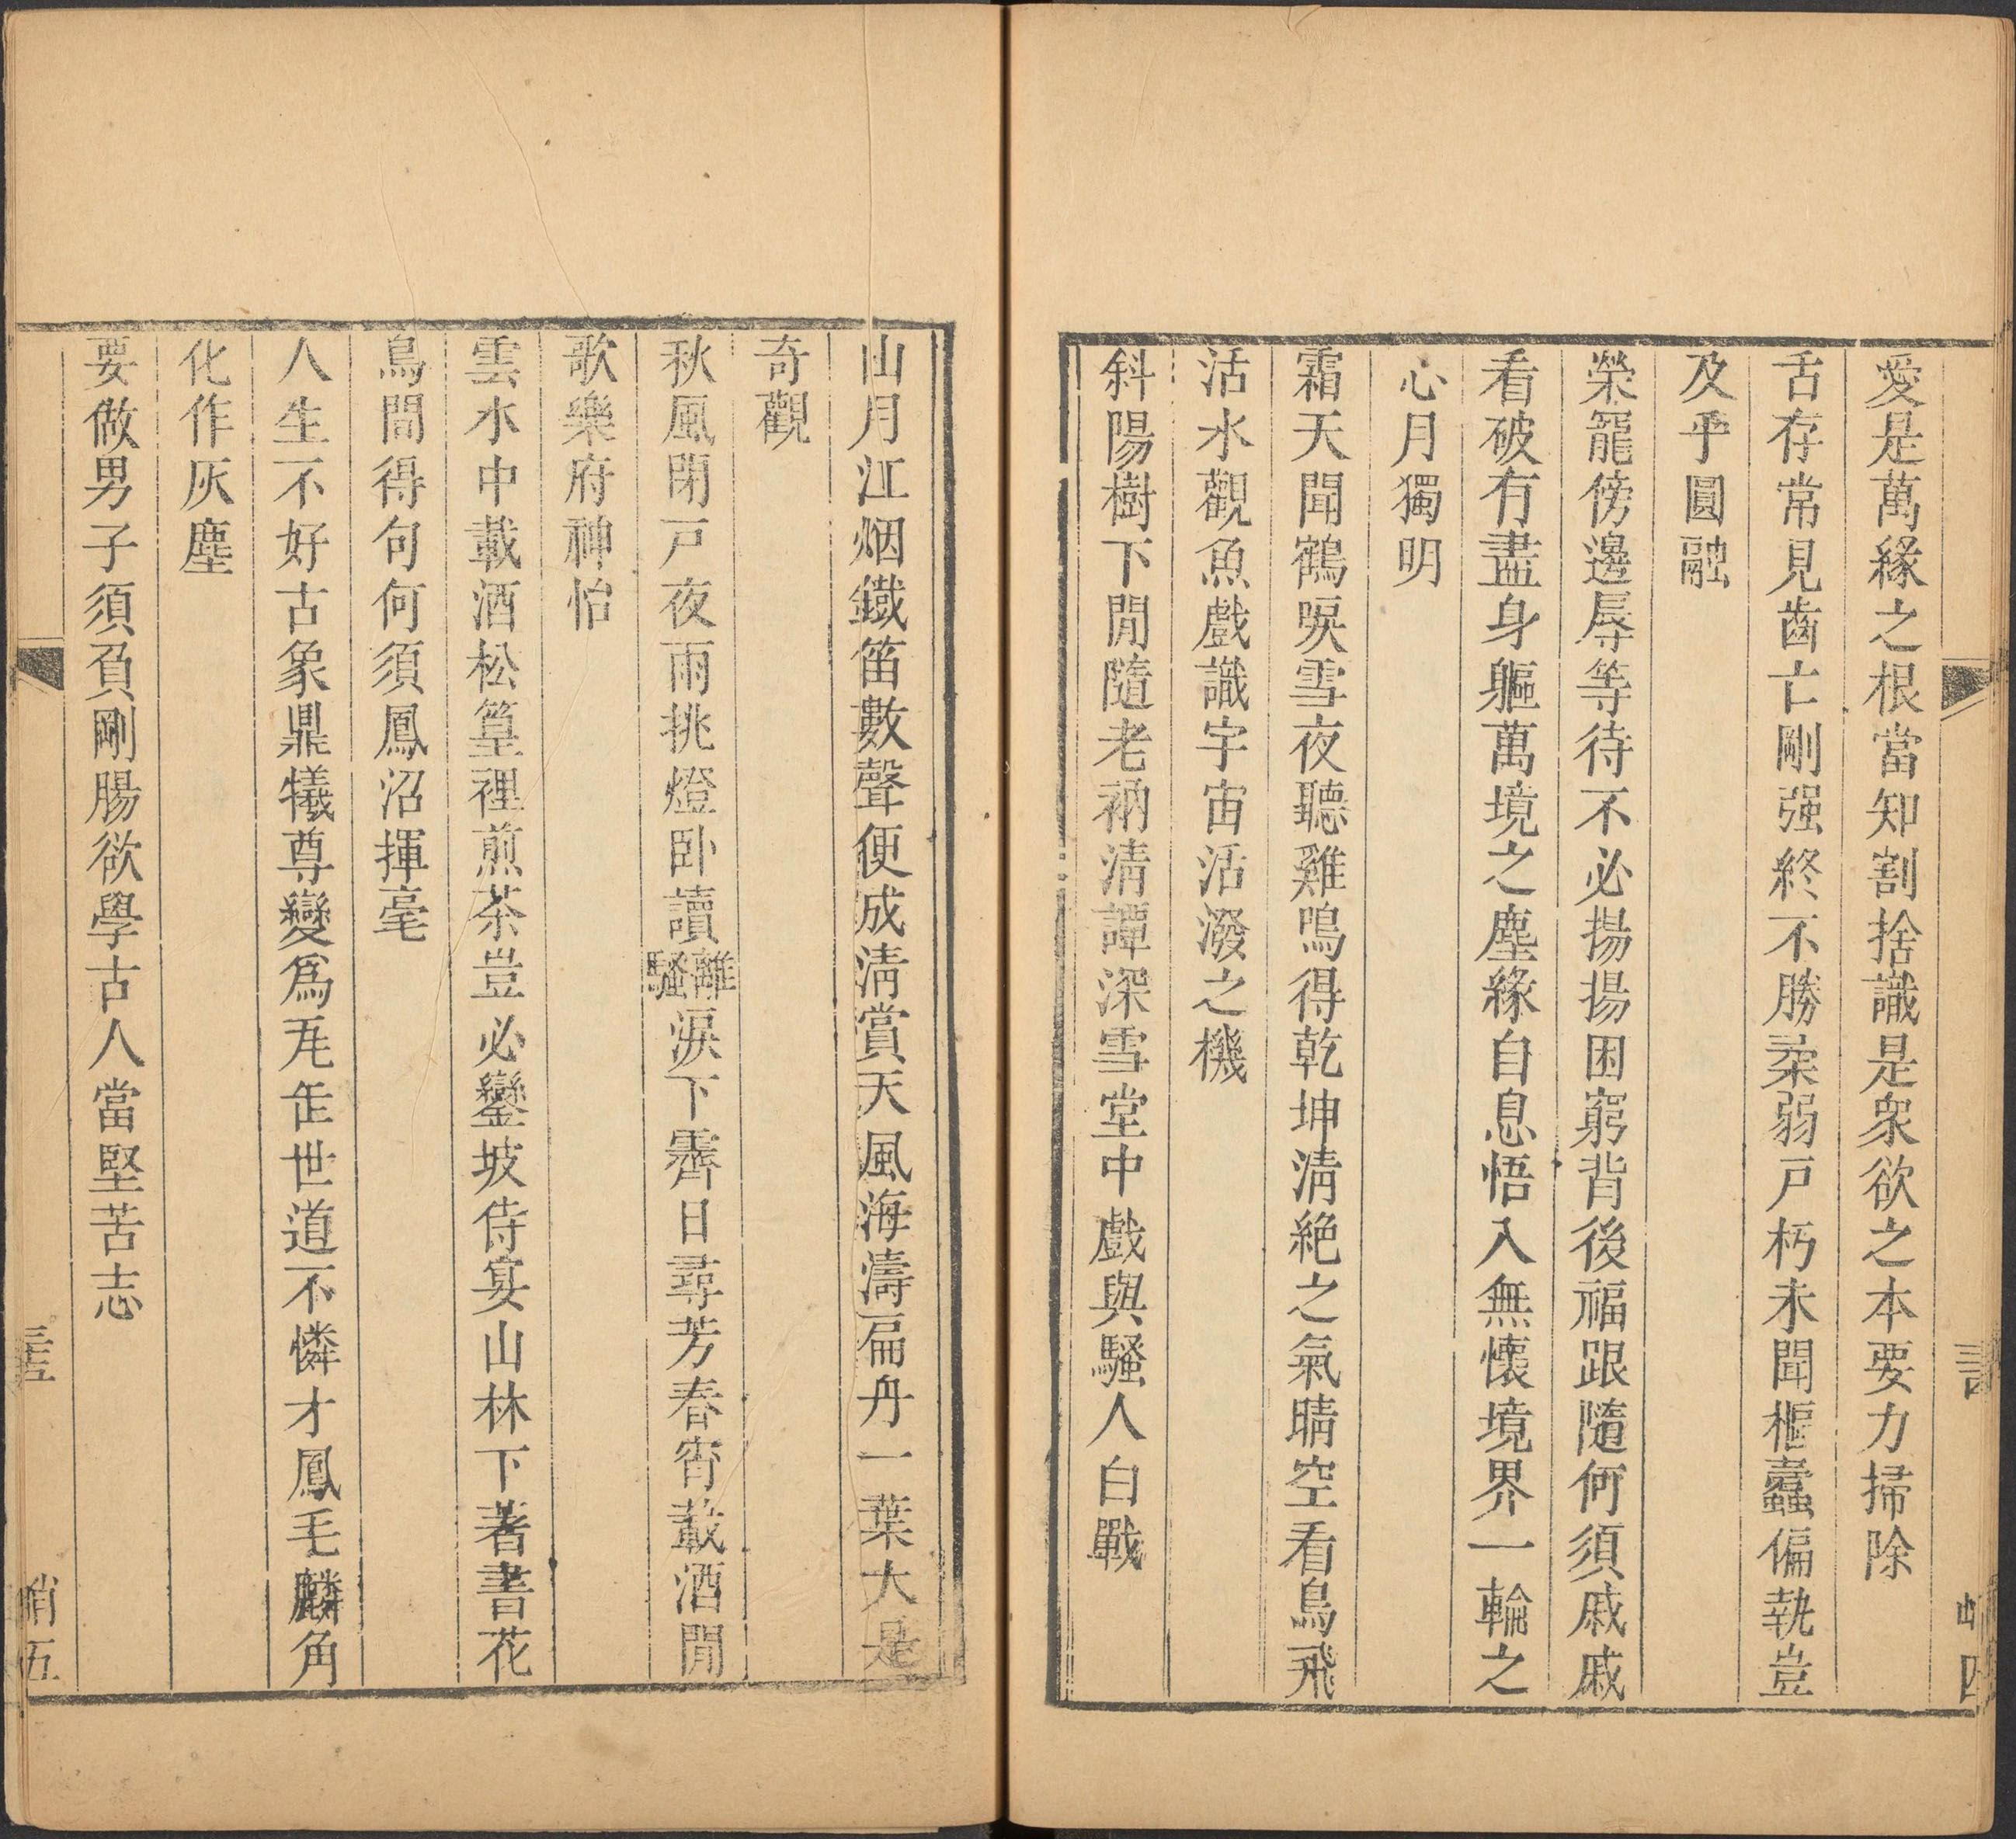 愛是萬緣之根當知割捨識是衆欲之本要力掃除
舌存常見齒亡剛强終不勝柔弱戸朽未聞樞蠹偏執豈
及乎圓融
榮寵傍邊辱等待不必揚揚困窮背後福跟隨何須戚戚
看破有盡身軀萬境之塵緣自息悟入無懷境界一輪之
心月獨明
霜天聞鶴唳雪夜聽雞鳴得乾坤淸絶之氣晴空看鳥飛
活水觀魚戲識宇宙活潑之機
斜陽樹下閒隨老衲淸譚深雪堂中戲與騷人白戰
四
山月江烟鐵笛數聲便成淸賞天風海濤扁舟一葉大是
奇觀
秋風閉戸夜雨挑燈卧讀離騷淚下霽日尋芳春宵載酒閒
歌樂府神怡
雲水中載酒松篁裡煎茶豈必鑾坡侍宴山林下著書花
鳥間得句何須鳳沼揮毫
人生不好古象鼎犧尊變爲瓦缶世道不憐才鳳毛麟角
化作灰塵
要做男子須負剛腸欲學古人當堅苦志
五